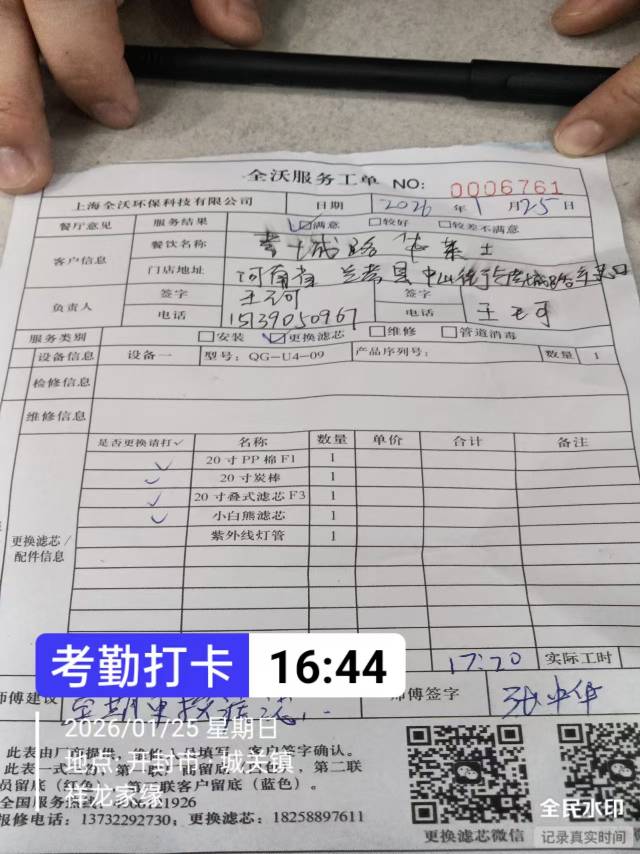 全沃服务工单 NO: 0006761
上海全沃环保科技有限公司 日期 2026年1月25日
餐厅意见 服务结果 ☑满意 □较好 □较差不满意
客户信息 餐饮名称 城路 华莱士
门店地址 河南省兰考县中山街与 城路 口
负责人 签字 签字
电话 15139050967 电话
服务类别 □安装 ☑更换滤芯 □维修 □管道消毒
设备信息 设备一 型号:QG-U4-09 产品序列号: 数量 1
检修信息
维修信息
更换滤芯/配件信息
是否更换请打✓ 名称 数量 单价 合计 备注
✓ 20寸PP棉F1 1
✓ 20寸炭棒 1
✓ 20寸叠式滤芯F3 1
✓ 小白熊滤芯 1
紫外线灯管 1
17:20 实际工时
考勤打卡 16:44
师傅建议 师傅签字 张中华
2026/01/25 星期日
地点:开封市·城关镇
祥龙家缘
此表由厂商提供 填写 客户签字确认。
此表一式 第一联 留底 第二联
员留底(红色) 联客户留底(蓝色)。
全国服务 1926
报修电话:13732292730;更换滤芯:18258897611
更换滤芯微信
全民水印
记录真实时间